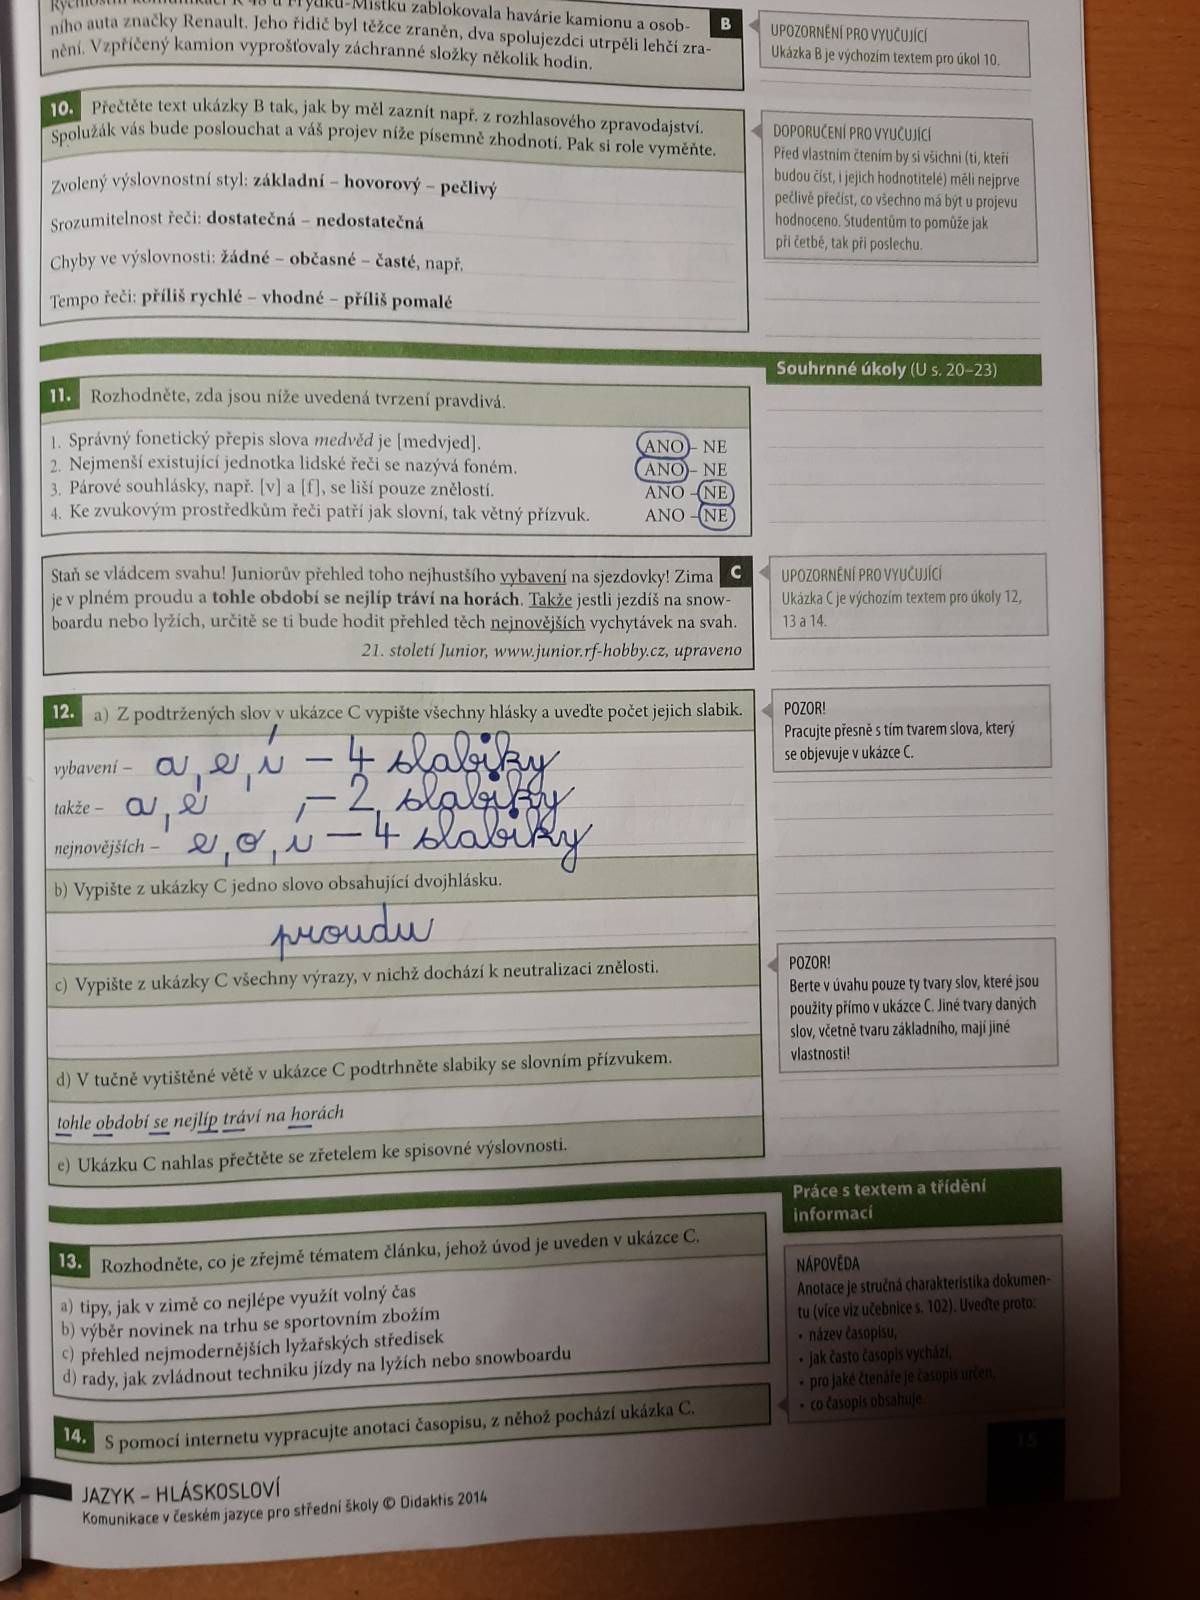 Rychlostní komunikaci R 48 u Frýdku-Místku zablokovala havárie kamionu a osob-
ního auta značky Renault. Jeho řidič byl těžce zraněn, dva spolujezdci utrpěli lehčí zra-
nění. Vzpříčený kamion vyprošťovaly záchranné složky několik hodin.
B
UPOZORNĚNÍ PRO VYUČUJÍCÍ
Ukázka B je výchozím textem pro úkol 10.
10. Přečtěte text ukázky B tak, jak by měl zaznít např. z rozhlasového zpravodajství.
Spolužák vás bude poslouchat a váš projev níže písemně zhodnotí. Pak si role vyměňte.
Zvolený výslovnostní styl: základní – hovorový – pečlivý
Srozumitelnost řeči: dostatečná – nedostatečná
Chyby ve výslovnosti: žádné – občasné – časté, např.
Tempo řeči: příliš rychlé – vhodné – příliš pomalé
DOPORUČENÍ PRO VYUČUJÍCÍ
Před vlastním čtením by si všichni (ti, kteří
budou číst, i jejich hodnotitelé) měli nejprve
pečlivě přečíst, co všechno má být u projevu
hodnoceno. Studentům to pomůže jak
při četbě, tak při poslechu.
Souhrnné úkoly (U s. 20–23)
11. Rozhodněte, zda jsou níže uvedená tvrzení pravdivá.
1. Správný fonetický přepis slova medvěd je [medvjed]. ANO – NE
2. Nejmenší existující jednotka lidské řeči se nazývá foném. ANO – NE
3. Párové souhlásky, např. [v] a [f], se liší pouze znělostí. ANO – NE
4. Ke zvukovým prostředkům řeči patří jak slovní, tak větný přízvuk. ANO – NE
Staň se vládcem svahu! Juniorův přehled toho nejhustšího vybavení na sjezdovky! Zima
je v plném proudu a tohle období se nejlíp tráví na horách. Takže jestli jezdíš na snow-
boardu nebo lyžích, určitě se ti bude hodit přehled těch nejnovějších vychytávek na svah.
21. století Junior, www.junior.rf-hobby.cz, upraveno
C
UPOZORNĚNÍ PRO VYUČUJÍCÍ
Ukázka C je výchozím textem pro úkoly 12,
13 a 14.
12. a) Z podtržených slov v ukázce C vypište všechny hlásky a uveďte počet jejich slabik.
vybavení – a, e, í – 4 slabiky
takže – a, e – 2 slabiky
nejnovějších – e, o, í – 4 slabiky
POZOR!
Pracujte přesně s tím tvarem slova, který
se objevuje v ukázce C.
b) Vypište z ukázky C jedno slovo obsahující dvojhlásku.
proudu
c) Vypište z ukázky C všechny výrazy, v nichž dochází k neutralizaci znělosti.
POZOR!
Berte v úvahu pouze ty tvary slov, které jsou
použity přímo v ukázce C. Jiné tvary daných
slov, včetně tvaru základního, mají jiné
vlastnosti!
d) V tučně vytištěné větě v ukázce C podtrhněte slabiky se slovním přízvukem.
tohle období se nejlíp tráví na horách
e) Ukázku C nahlas přečtěte se zřetelem ke spisovné výslovnosti.
Práce s textem a třídění
informací
13. Rozhodněte, co je zřejmě tématem článku, jehož úvod je uveden v ukázce C.
a) tipy, jak v zimě co nejlépe využít volný čas
b) výběr novinek na trhu se sportovním zbožím
c) přehled nejmodernějších lyžařských středisek
d) rady, jak zvládnout techniku jízdy na lyžích nebo snowboardu
NÁPOVĚDA
Anotace je stručná charakteristika dokumen-
tu (více viz učebnice s. 102). Uveďte proto:
• název časopisu,
• jak často časopis vychází,
• pro jaké čtenáře je časopis určen,
• co časopis obsahuje.
14. S pomocí internetu vypracujte anotaci časopisu, z něhož pochází ukázka C.
15
JAZYK – HLÁSKOSLOVÍ
Komunikace v českém jazyce pro střední školy © Didaktis 2014